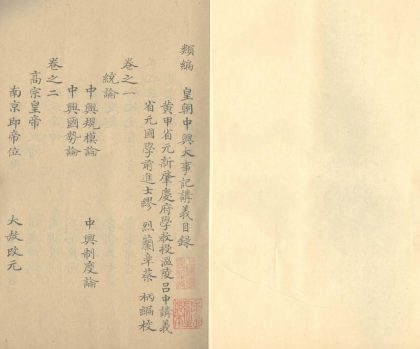 類編 皇朝中興大事記講義目錄
黃甲省元新肇慶府學教授溫陵呂中講義
省元國學前進士繆 烈蘭皋蔡 柄編校
卷之一
統論
中興規模論 中興制度論
中興國勢論
卷之二
高宗皇帝
南京即帝位 大赦改元